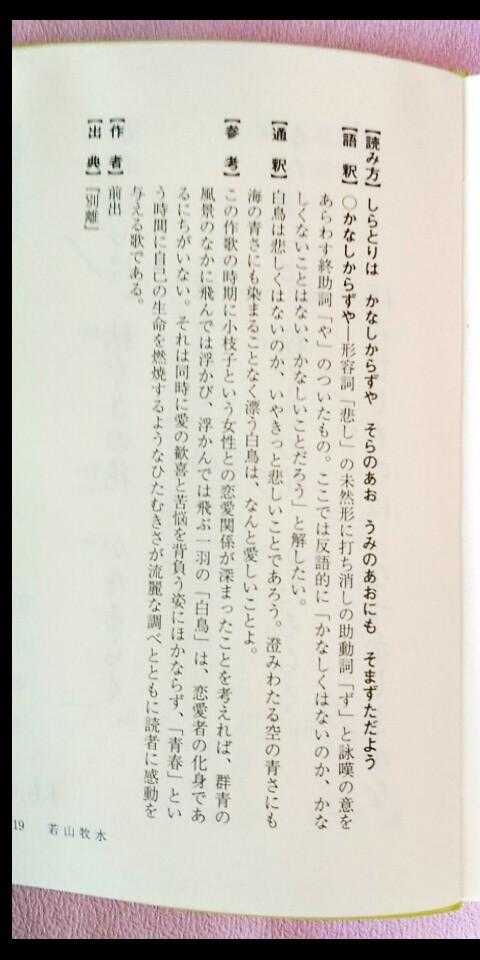 【読み方】しらとりは　かなしからずや　そらのあお　うみのあおにも　そまずただよう
【語　釈】○かなしからずや―形容詞「悲し」の未然形に打ち消しの助動詞「ず」と詠嘆の意を
あらわす終助詞「や」のついたもの。ここでは反語的に「かなしくはないのか、かな
しくないことはない、かなしいことだろう」と解したい。
【通　釈】白鳥は悲しくはないのか、いやきっと悲しいことであろう。澄みわたる空の青さにも
海の青さにも染まることなく漂う白鳥は、なんと愛しいことよ。
【参　考】この作歌の時期に小枝子という女性との恋愛関係が深まったことを考えれば、群青の
風景のなかに飛んでは浮かび、浮かんでは飛ぶ一羽の「白鳥」は、恋愛者の化身であ
るにちがいない。それは同時に愛の歓喜と苦悩を背負う姿にほかならず、「青春」とい
う時間に自己の生命を燃焼するようなひたむきさが流麗な調べとともに読者に感動を
与える歌である。
【作　者】前出
【出　典】『別離』
19　若山牧水